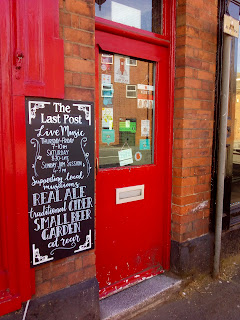 The
Last Post
Live Music
Thursday-Friday
7-10pm
Saturday
Sunday Jam Session
4-7pm
Supporting local
musicians
REAL ALE
traditional CIDER
SMALL BEER
GARDEN
at rear